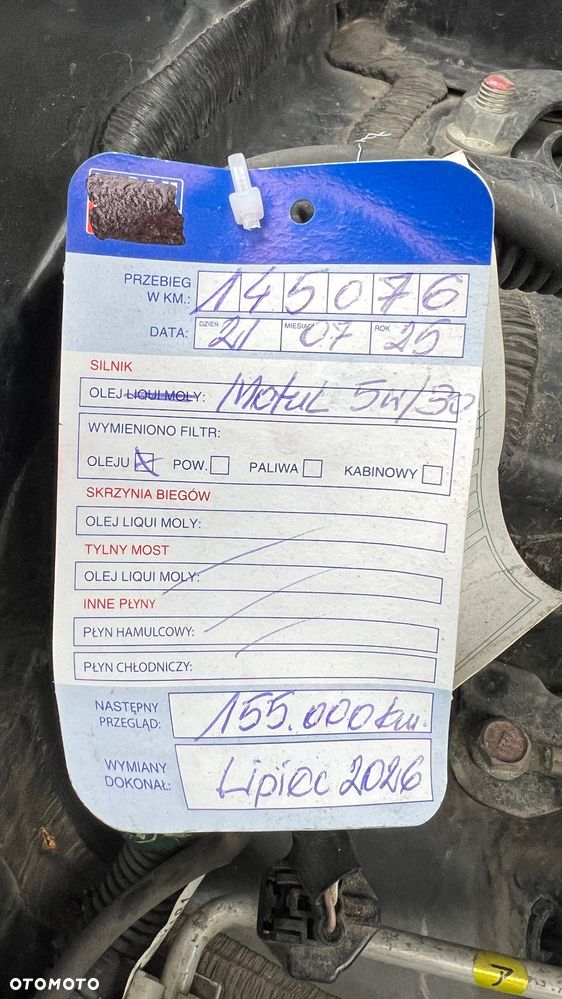 PRZEBIEG W KM.: 145076
DATA: DZIEŃ 21 MIESIĄC 07 ROK 25
SILNIK
OLEJ LIQUI MOLY: Motul 5W/30
WYMIENIONO FILTR:
OLEJU POW. PALIWA KABINOWY
SKRZYNIA BIEGÓW
OLEJ LIQUI MOLY:
TYLNY MOST
OLEJ LIQUI MOLY:
INNE PŁYNY
PŁYN HAMULCOWY:
PŁYN CHŁODNICZY:
NASTĘPNY PRZEGLĄD: 155.000 km.
WYMIANY DOKONAŁ: Lipiec 2026
OTOMOTO